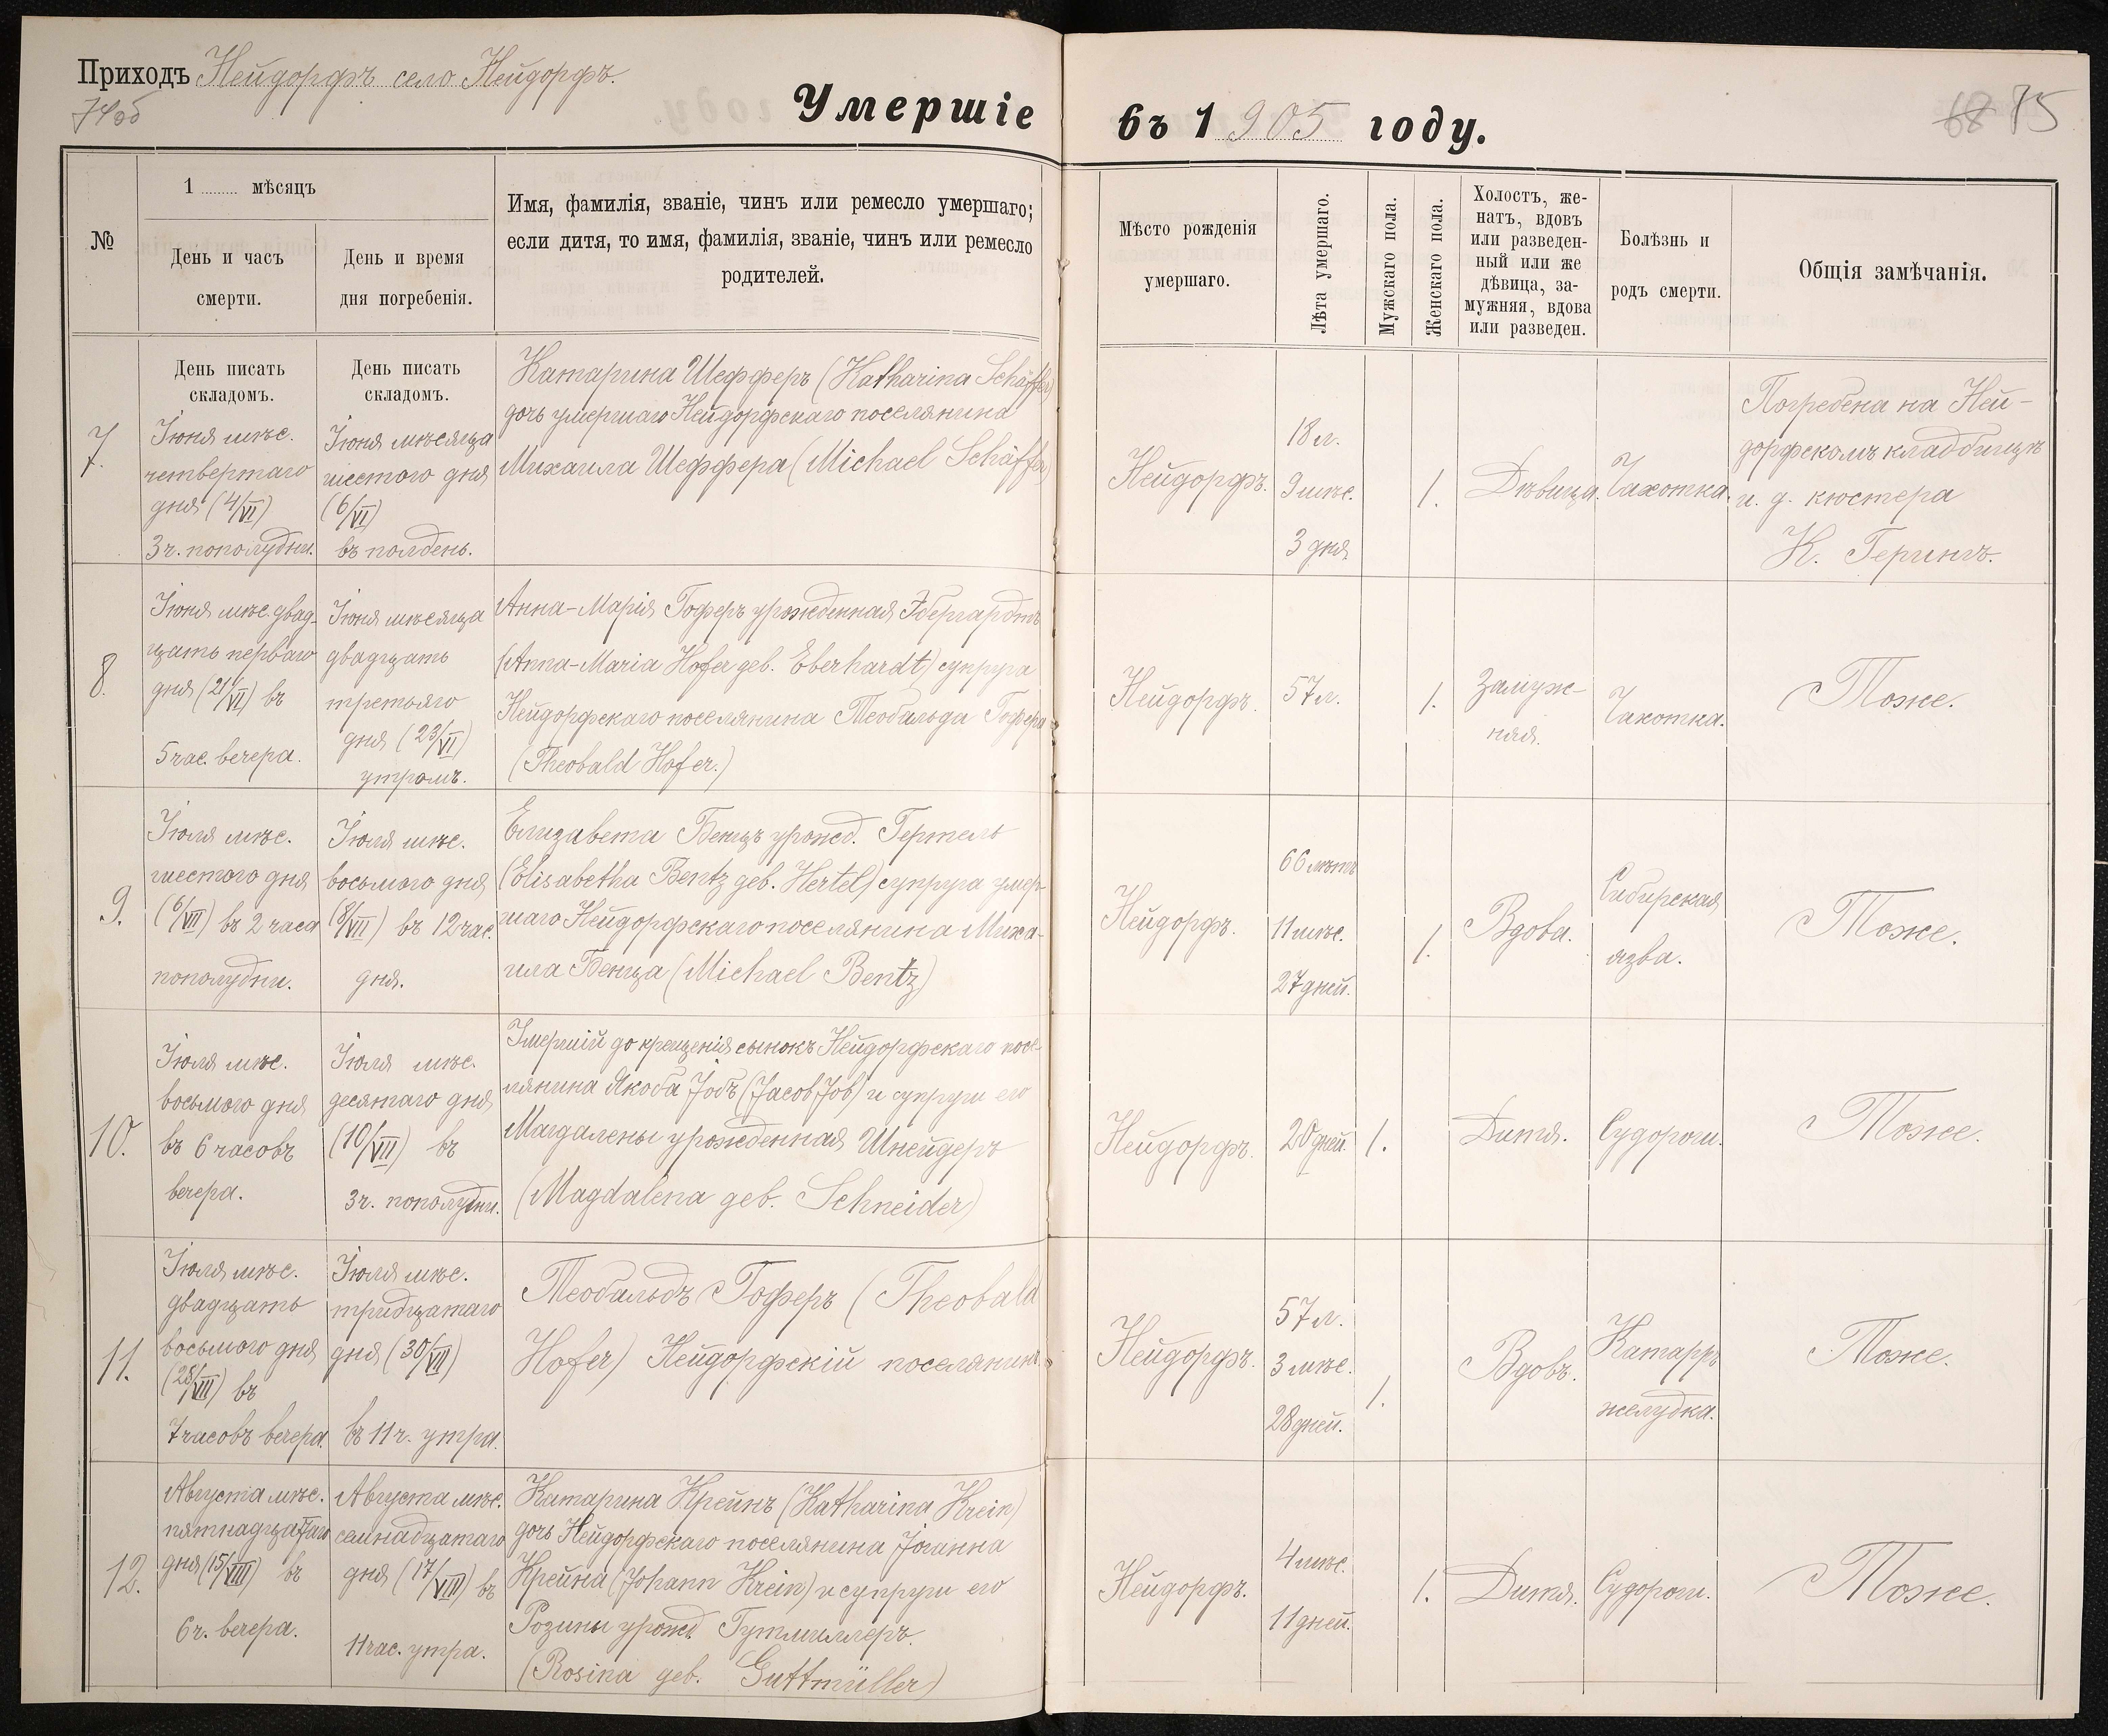 Приходъ Нейдорфъ село Нейдорфъ.
74об
Умершіе
въ 1905 году.
68 75
№
1 ......... мѣсяцъ
День и часъ
смерти.
День и время
дня погребенія.
Имя, фамилія, званіе, чинъ или ремесло умершаго;
если дитя, то имя, фамилія, званіе, чинъ или ремесло
родителей.
Мѣсто рожденія
умершаго.
Лѣта умершаго.
Мужскаго пола.
Женскаго пола.
Холостъ, же-
натъ, вдовъ
или разведен-
ный или же
дѣвица, за-
мужняя, вдова
или разведен.
Болѣзнь и
родъ смерти.
Общія замѣчанія.
День писать
складомъ.
День писать
складомъ.
7.
Іюня мѣс.
четвертаго
дня (4/VI)
3ч. пополудни.
Іюня мѣсяца
шестого дня
(6/VI)
въ полдень.
Катарина Шефферъ (Katharina Schäffer)
дочь умершаго Нейдорфскаго поселянина
Михаила Шеффера (Michael Schäffer)
Нейдорфъ.
18 л.
9 мѣс.
3 дня
1.
Дѣвица.
Чахотка.
Погребена на Ней-
дорфскомъ кладбищѣ
и. д. кюстера
К. Герингъ.
8.
Іюня мѣс. двад-
цать перваго
дня (21/VI) въ
5 час. вечера.
Іюня мѣсяца
двадцать
третьяго
дня (23/VI)
утромъ.
Анна-Марія Гоферъ урожденная Эбергардтъ
(Anna-Maria Hofer geb. Eberhardt) супруга
Нейдорфскаго поселянина Теобальда Гофера
(Theobald Hofer.)
Нейдорфъ.
57 л.
1.
Замуж-
няя.
Чахотка.
Тоже.
9.
Іюля мѣс.
шестого дня
(6/VII) въ 2 часа
пополудни.
Іюля мѣс.
восьмого дня
(8/VII) въ 12 час.
дня.
Елизавета Бенцъ урожд. Гертель
(Elisabetha Bentz geb. Hertel) супруга умер-
шаго Нейдорфскаго поселянина Миха-
ила Бенца (Michael Bentz)
Нейдорфъ.
66 лѣтъ
11 мѣс.
27 дней.
1.
Вдова.
Сибирская
язва.
Тоже.
10.
Іюля мѣс.
восьмого дня
въ 6 часовъ
вечера.
Іюля мѣс.
десятаго дня
(10/VII) въ
3ч. пополудни.
Умершій до крещенія сынокъ Нейдорфскаго посе-
лянина Якоба Іобъ (Jacob Job) и супруги его
Магдалены урожденная Шнейдеръ
(Magdalena geb. Schneider)
Нейдорфъ.
20 дней.
1.
Дитя.
Судороги.
Тоже.
11.
Іюля мѣс.
двадцать
восьмого дня
(28/VII) въ
7 часовъ вечера.
Іюля мѣс.
тридцатаго
дня (30/VII)
въ 11 ч. утра.
Теобальдъ Гоферъ (Theobald
Hofer) Нейдорфскій поселянинъ.
Нейдорфъ.
57 л.
3 мѣс.
28 дней.
1.
Вдовъ.
Катарръ
желудка.
Тоже.
12.
Августа мѣс.
пятнадцатаго
дня (15/VIII) въ
6 ч. вечера.
Августа мѣс.
семнадцатаго
дня (17/VIII) въ
11 час. утра.
Катарина Крейнъ (Katharina Krein)
дочь Нейдорфскаго поселянина Іоганна
Крейна (Johann Krein) и супруги его
Розины урожд. Гутмиллеръ.
(Rosina geb. Guttmüller)
Нейдорфъ.
4 мѣс.
11 дней.
1.
Дитя.
Судороги.
Тоже.